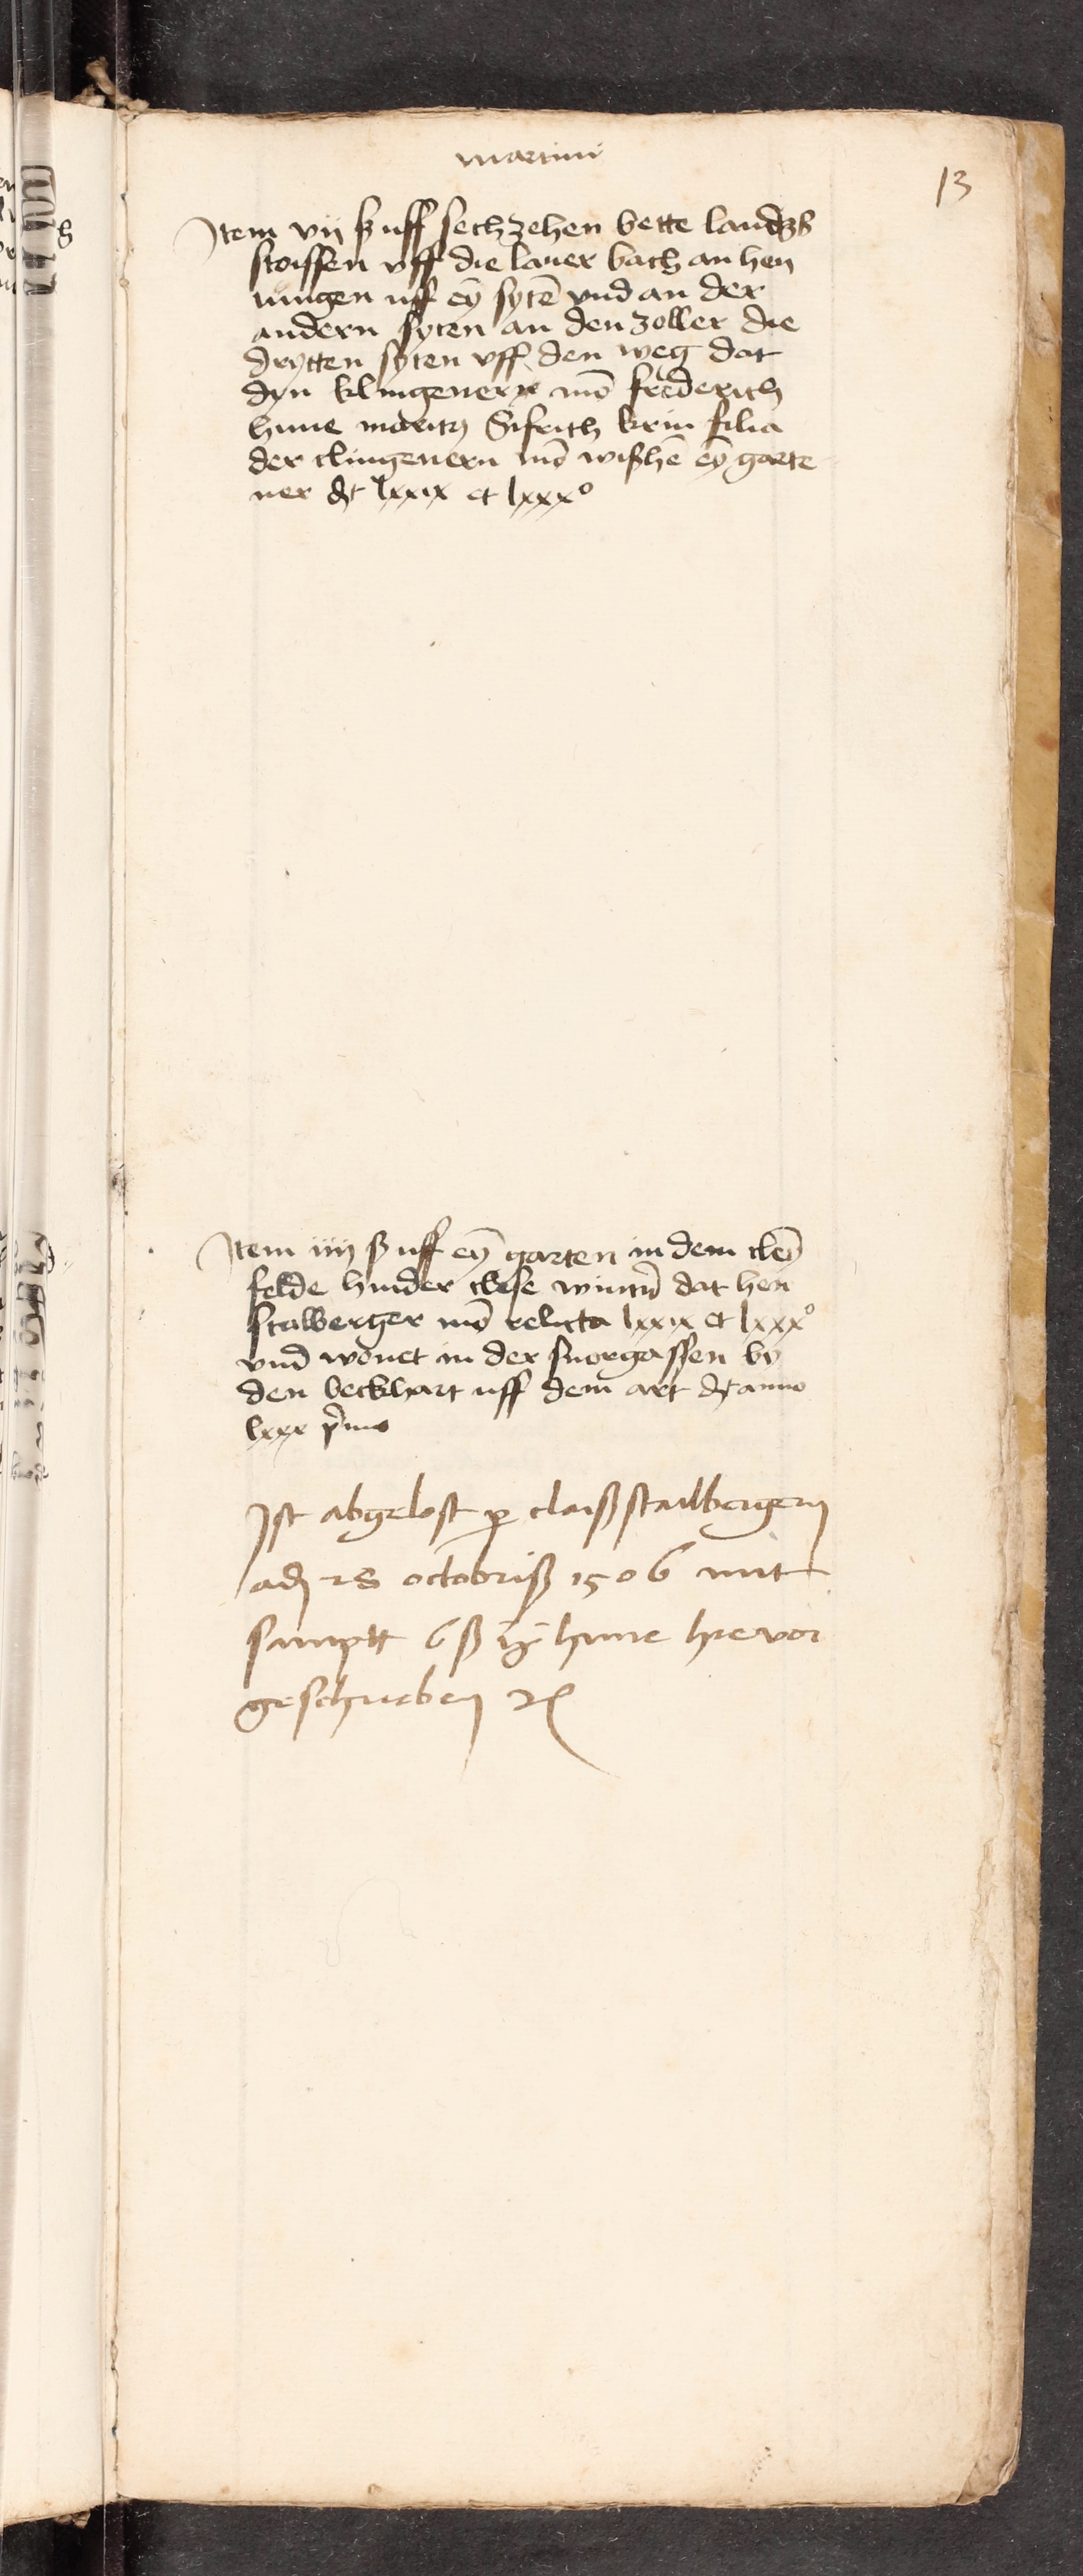 martini
13
Item vij ß uff sechzehen bette landeß
stoissen vff die lauer bach an hen
nungen uff eȳ sytē vnd an der
andern syten an den zoller die
drytten syten vff den weg dat
dyn klingenern mō frederich
hune Sifrith krin filia
der clingenern mō wißhē eȳ garte
ner dt lxxix et lxxxº
Item iiij ß uff eȳ garten in dem cleȳ
felde hinder clese dat hen
stalberger mō relicta lxxix et lxxxº
vnd wonet in der snorgassen by
den beckhart uff dem art dt anno
lxxx p̄mo
Ist abgelost p claiß stailbergern
adj 28 octobriß 1506 mit
samptt 6 ß hune hievor
geschrieben